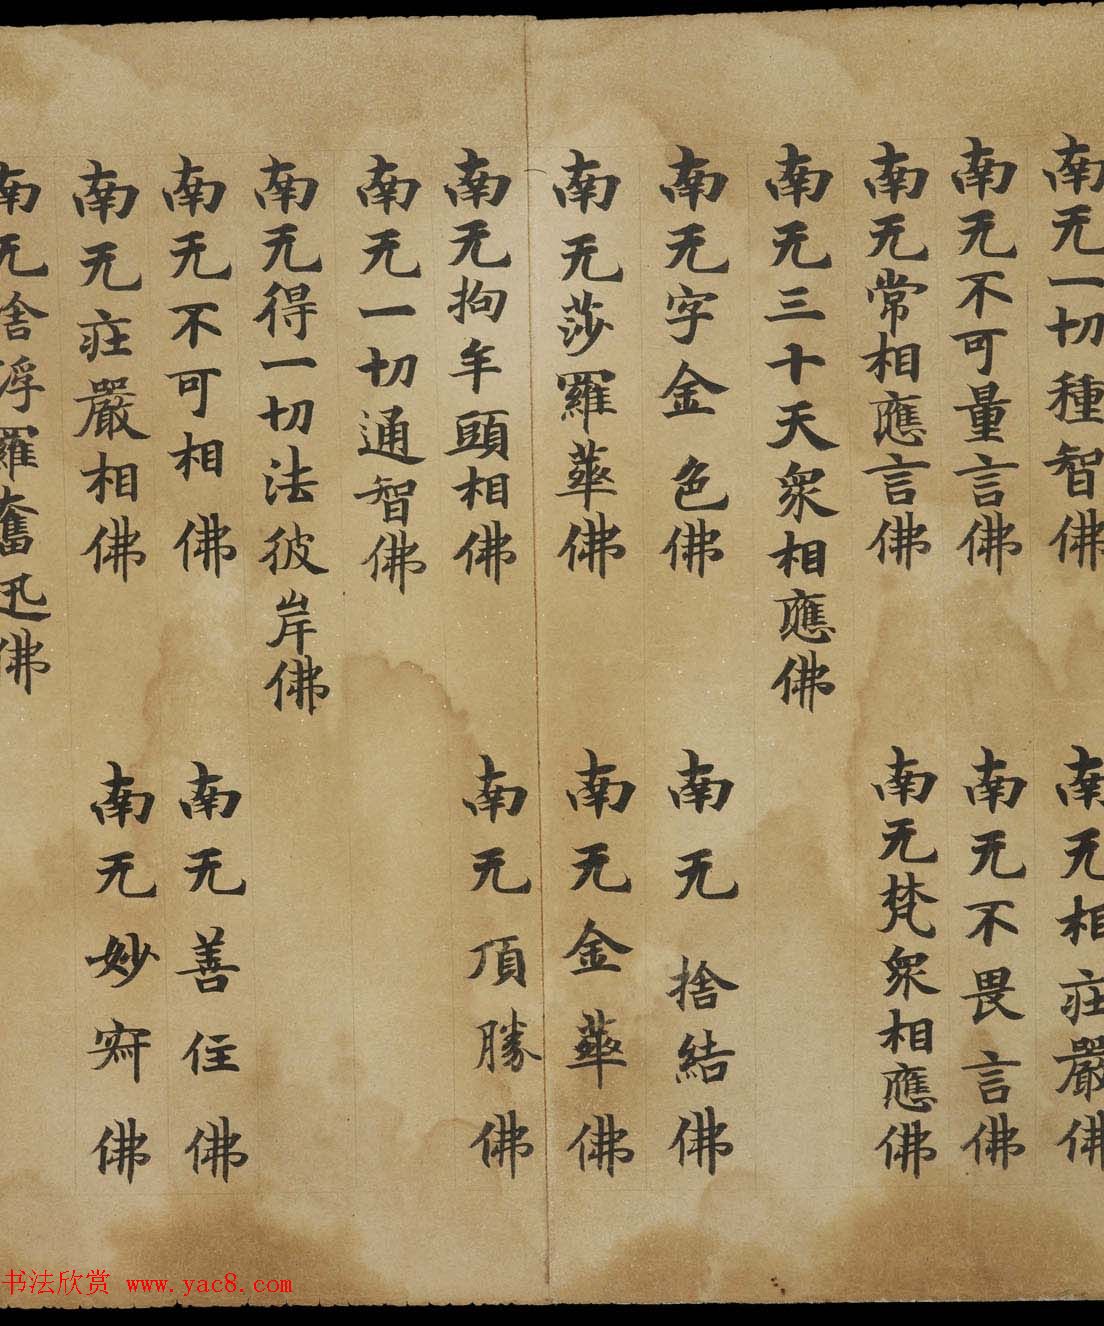 南无一切種智佛
南无相莊嚴佛
南无不可量言佛
南无不畏言佛
南无常相應言佛
南无梵眾相應佛
南无三十天眾相應佛
南无字金色佛
南无捨結佛
南无莎羅華佛
南无金華佛
南无拘牟頭相佛
南无頂勝佛
南无一切通智佛
南无得一切法彼岸佛
南无不可相佛
南无善住佛
南无莊嚴相佛
南无妙㝎佛
南无舍浮羅奮迅佛
书法欣赏 www.yac8.com